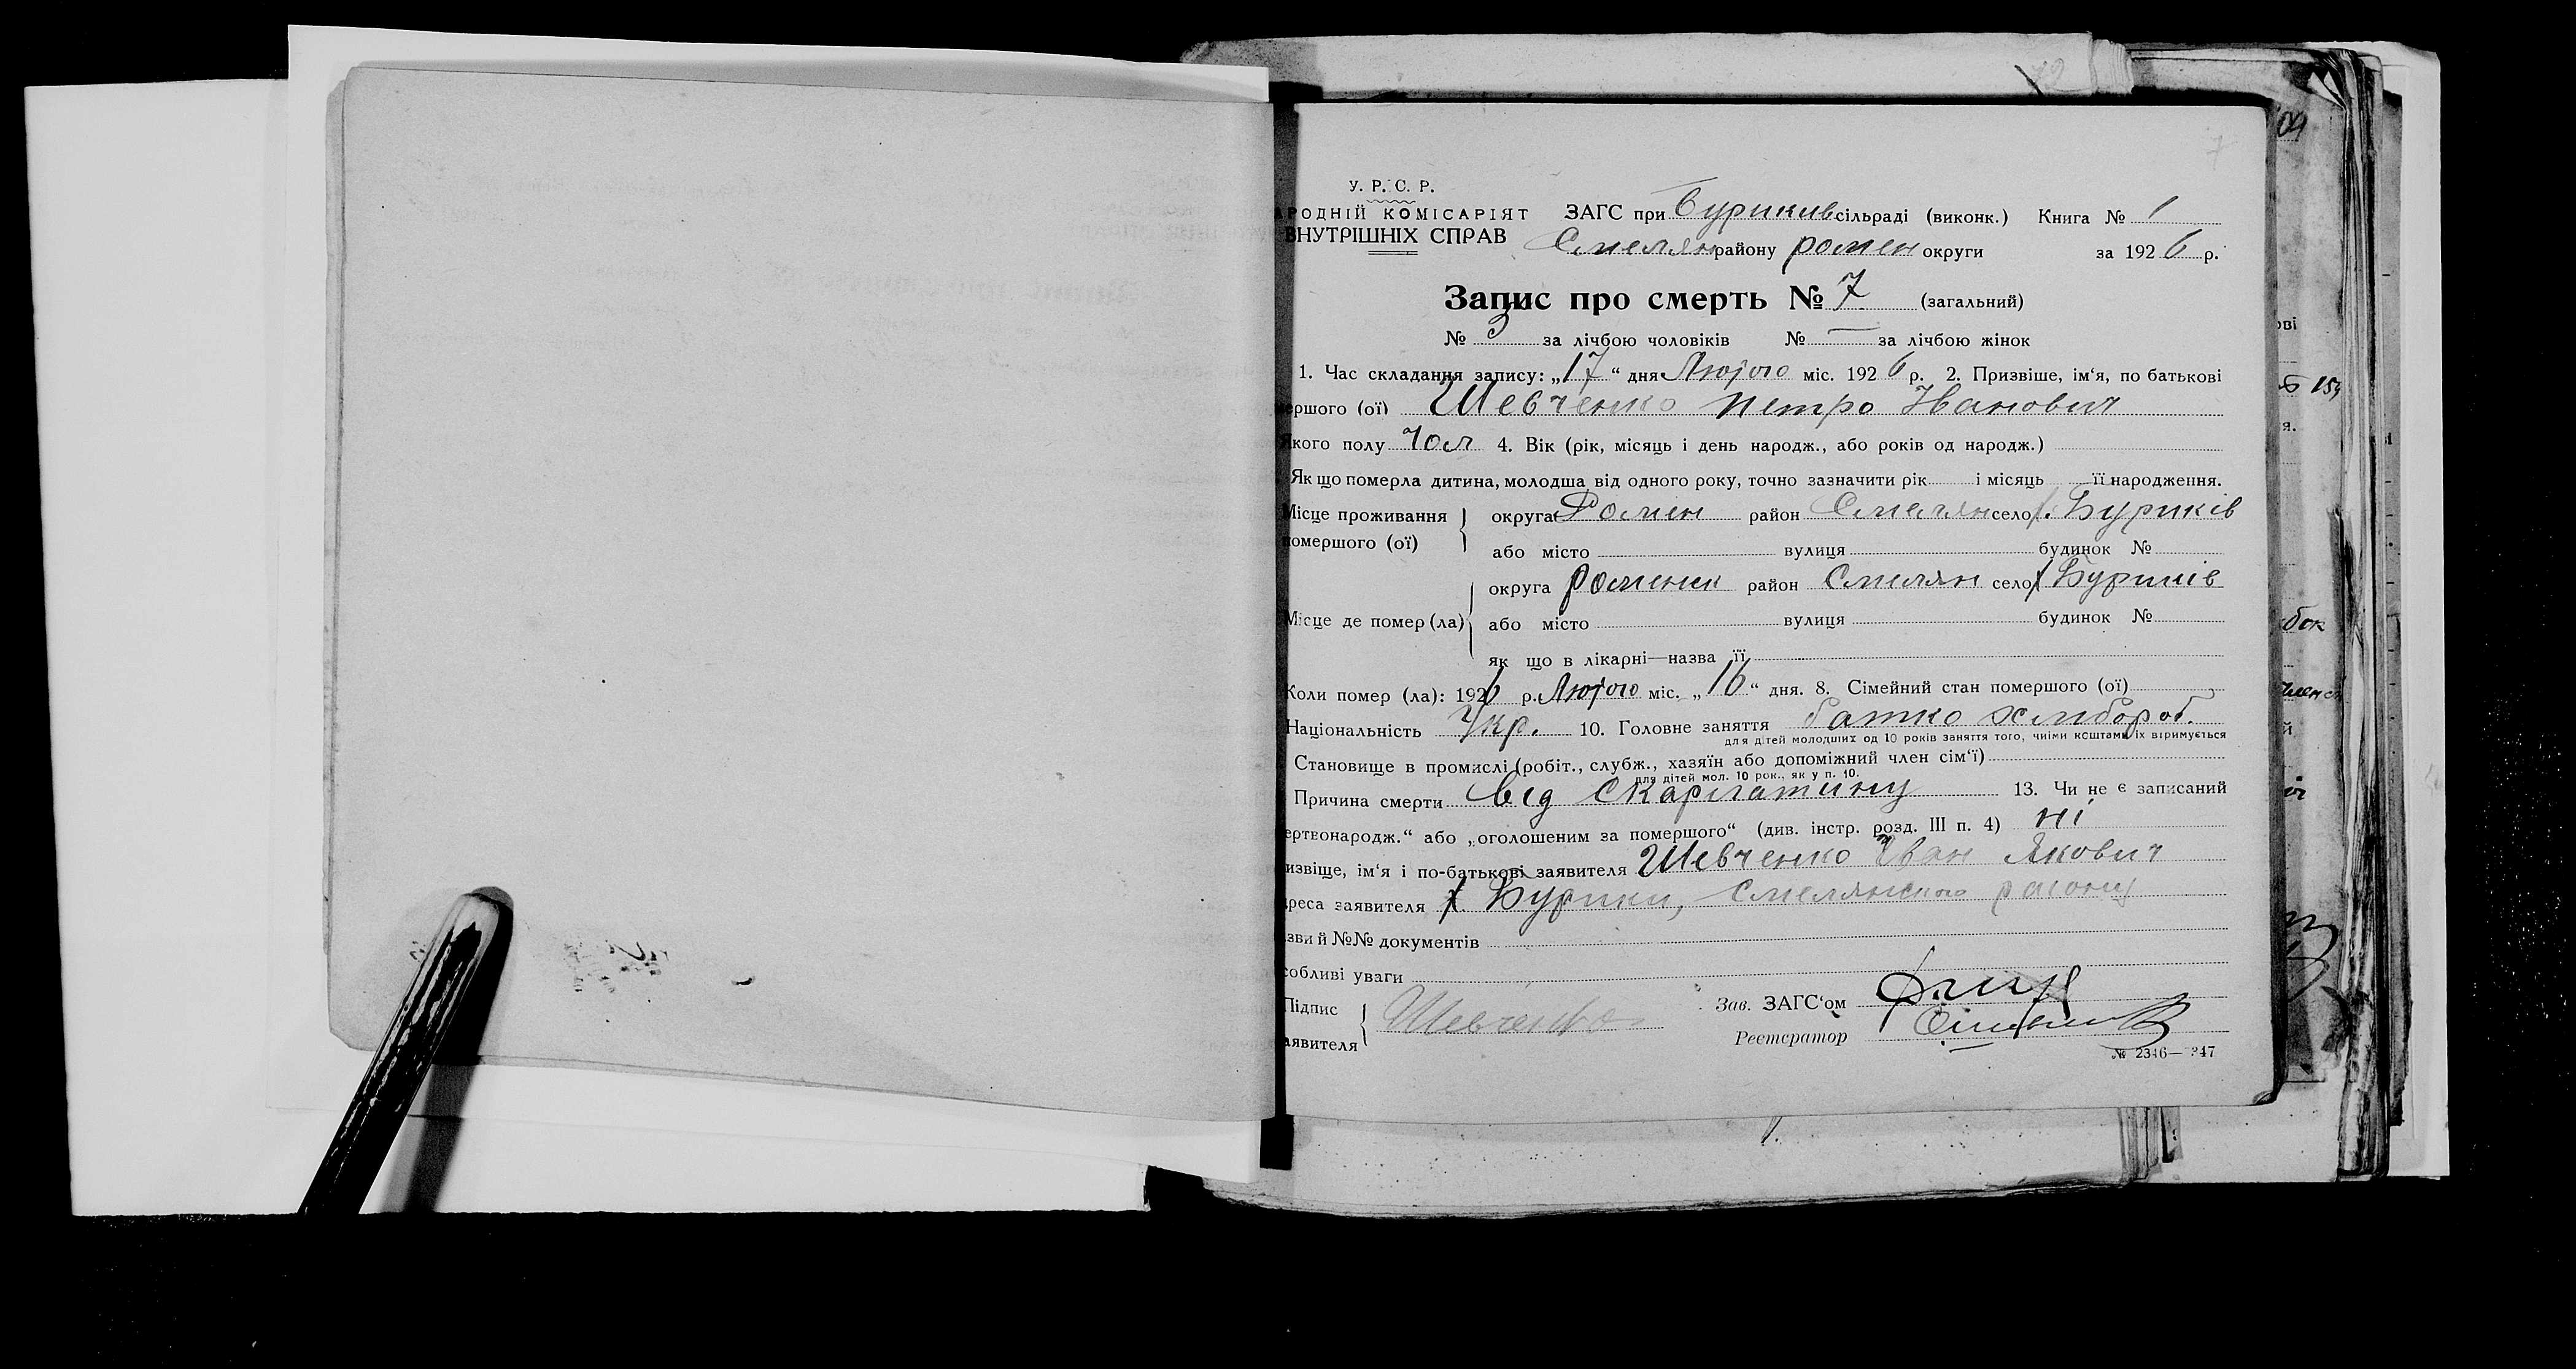 У. Р. С. Р.
РОДНІЙ КОМІСАРІЯТ ЗАГС при Буриківсільраді (виконк.) Книга № 1
ВНУТРІШНІХ СПРАВ Смелянрайону ромен округи за 1926 р.
Запис про смерть № 7 (загальний)
№ 3 за лічбою чоловіків № — за лічбою жінок
1. Час складання запису: „17“ дня Лютого міс. 1926 р. 2. Призвіше, ім‘я, по батькові
ершого (ої) Шевченко Петро Іванович
кого полу чол 4. Вік (рік, місяць і день народж., або років од народж.)
Як що померла дитина, молодша від одного року, точно зазначити рік і місяць її народження.
Місце проживання округа Ромен район Смелян село х. Буриків
омершого (ої) або місто вулиця будинок №
округа Роменск район Смелян село х Буриків
Місце де помер (ла) або місто вулиця будинок №
як що в лікарні—назва її
Коли помер (ла): 1926 р. Лютого міс. „16“ дня. 8. Сімейний стан помершого (ої)
Національність Укр. 10. Головне заняття батко хлибороб.
для дітей молодших од 10 років заняття того, чиїми коштами їх втримується
Становище в промислі (робіт., службж., хазяїн або допоміжний член сім‘ї)
для дітей мол. 10 рок., як у п. 10.
Причина смерти від Скарлатини 13. Чи не є записаний
ертвонародж.“ або „оголошеним за помершого“ (див. інстр. розд. III п. 4) ні
извіще, ім‘я і по-батькові заявителя Шевченко Іван Якович
реса заявителя х. Бурики, Смелянского району
зви й №№ документів
собливі уваги
Підпис Шевченко Зав. ЗАГС‘ом
аявителя Реєстратор
№ 2346—347